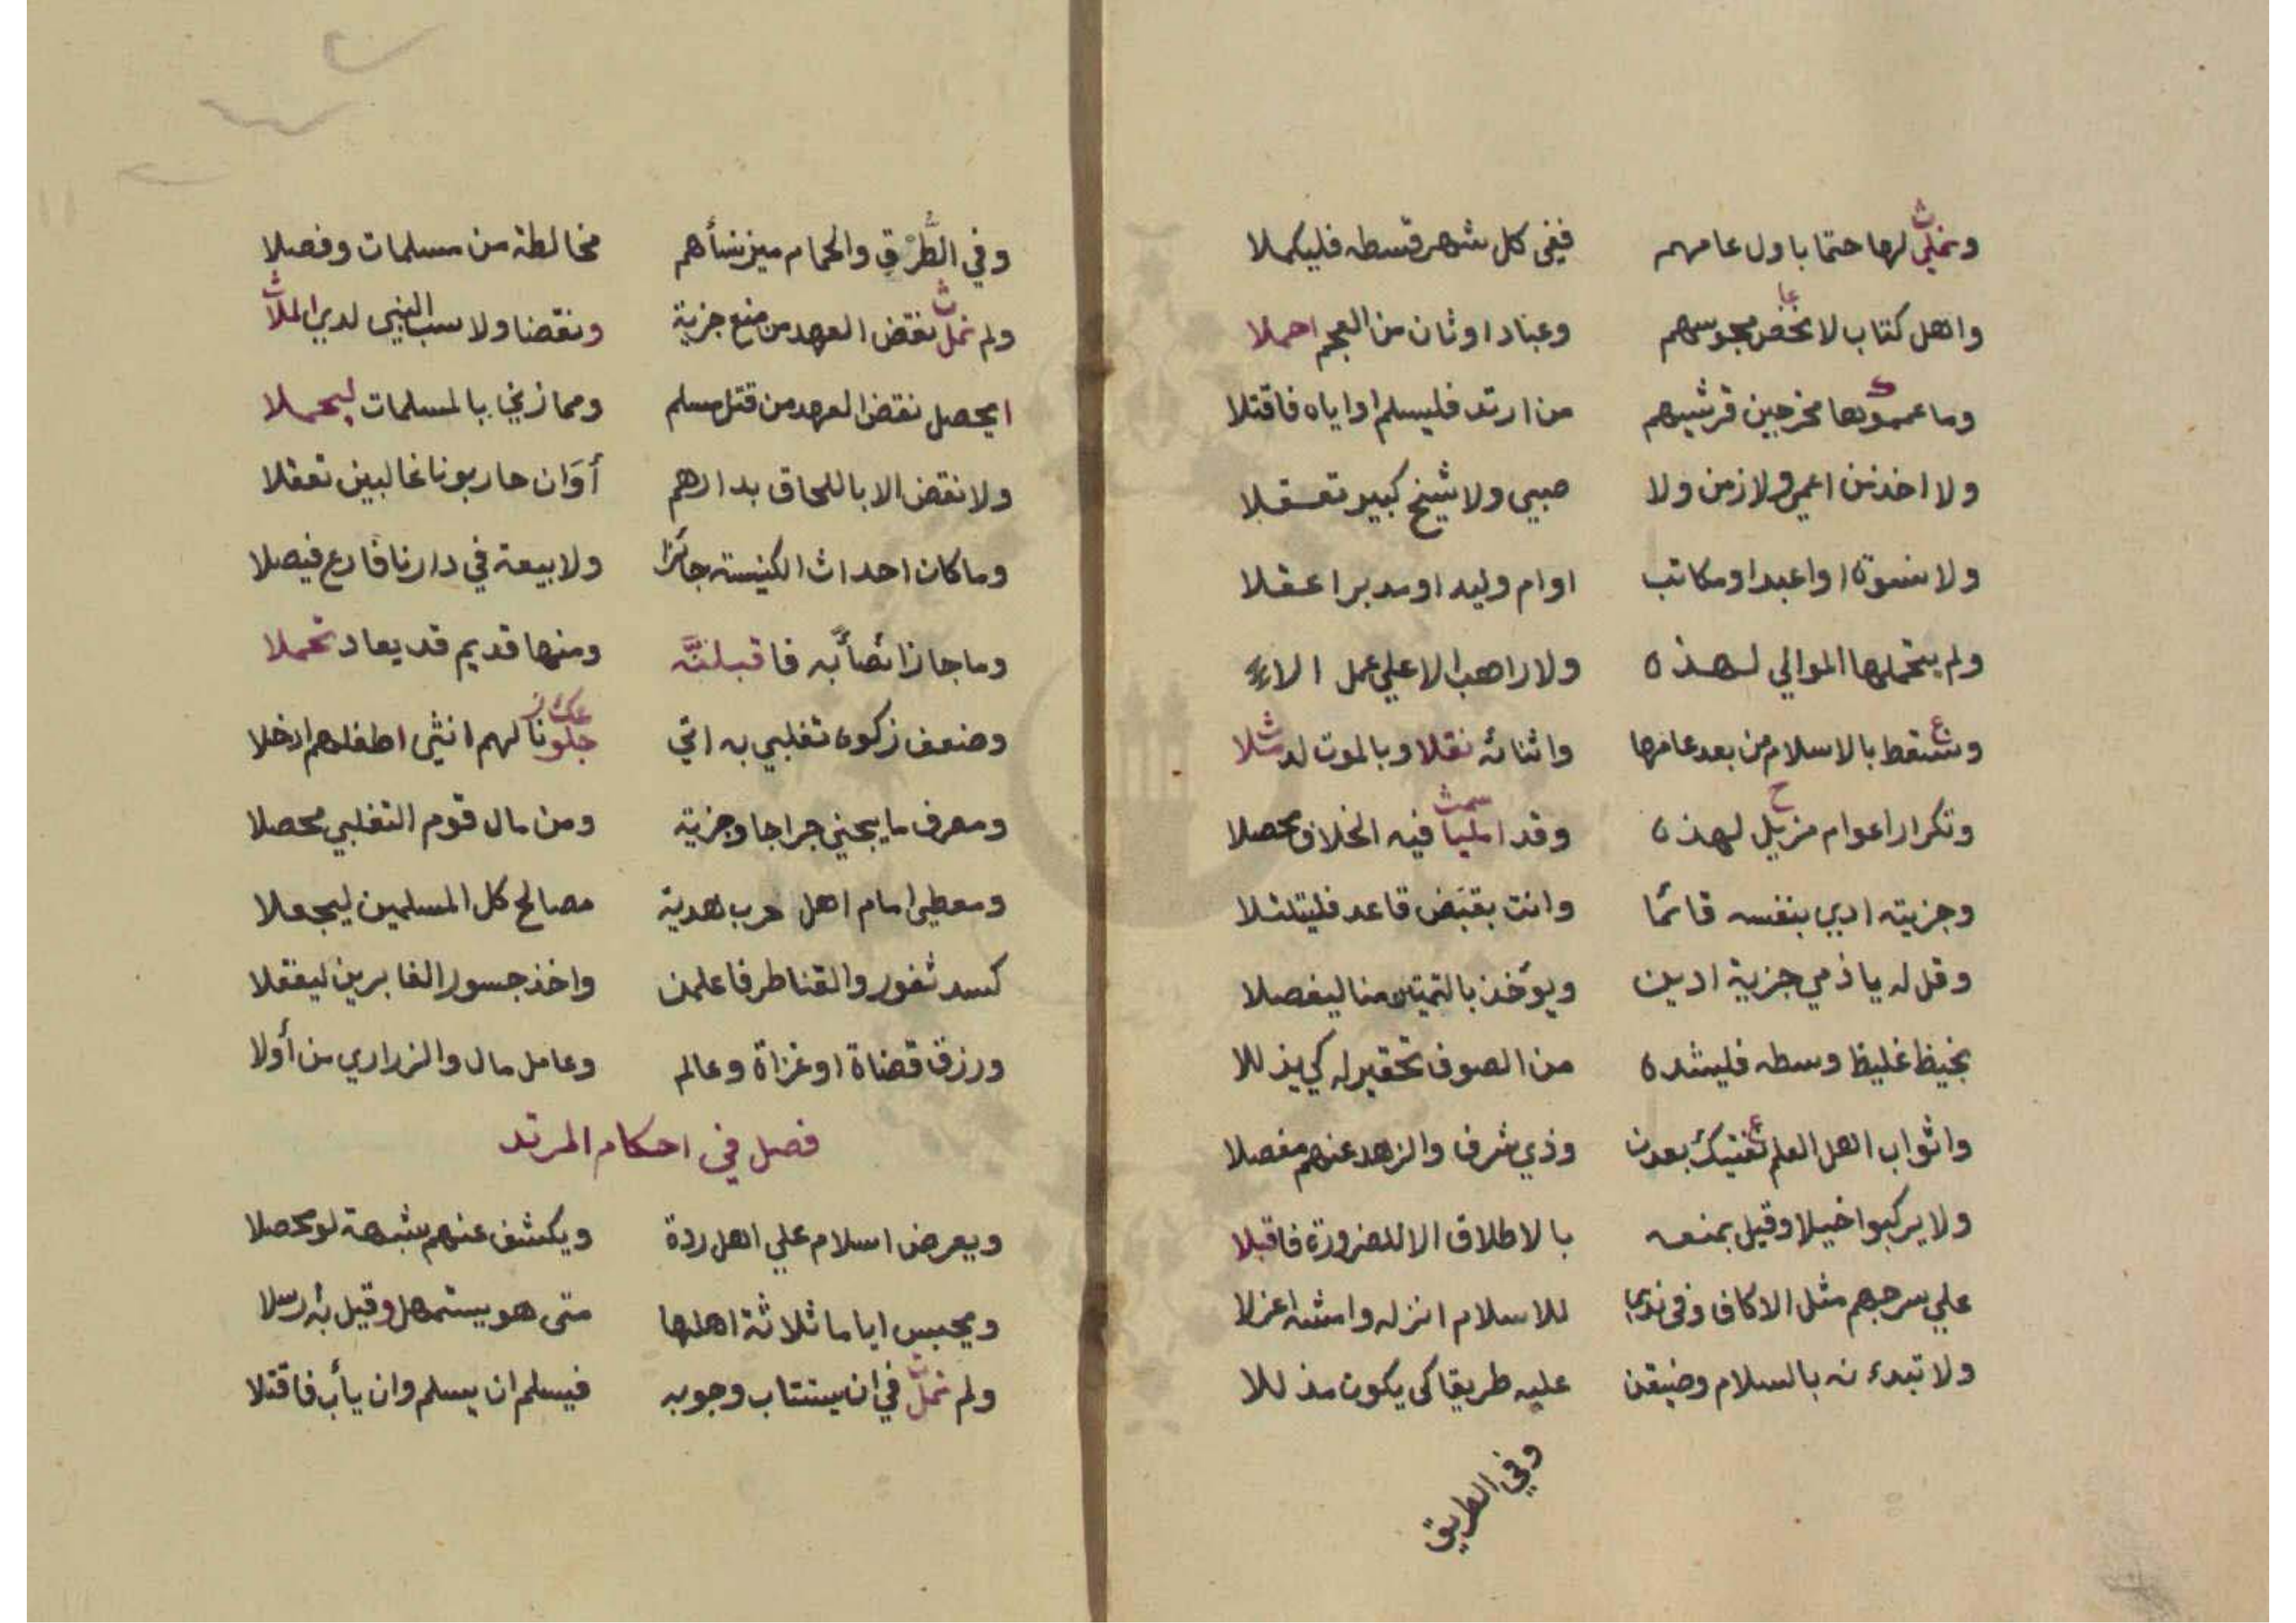 ونملي لها حتما باول عامهم ففي كل شهر قسطه فليكملا
واهل كتاب لا نخص مجوسهم وعباد اوثان من العجم احملا
وما عمموها مخرجين قرشيهم من ارتد فليسلم او اياه فاقتلا
ولا اخذ من اعمي ولا زمن ولا صبي ولا شيخ كبير تعقلا
ولا نسوة او اعبد او مكاتب او ام وليد او مدبرا عقلا
ولم يتحملها الموالي لهذه ولا راهب الا علي عمل الاء
وتسقط بالاسلام من بعد عامها واثنائه نقلا وبالموت لد شلا
وتكرار اعوام مزيل لهذه وقد امليا فيه الخلاف محصلا
وجزيته ادي بنفسه قائما وانت بقبض قاعد فليتلتلا
وقل له يا ذمي جزية ادين ويؤخذ بالتمييز منا ليفصلا
بخيط غليظ وسطه فليشده من الصوف تحقير له كي يذللا
واثواب اهل العلم بعدن وذي شرف والزهد عنهم مفصلا
ولا يركبوا خيلا وقيل بمنعه بالاطلاق الا للضرورة فاقبلا
علي سرجهم مثل الاكاف وفي ندي للاسلام انزله وامشه اعزلا
ولا تبدءنه بالسلام وضيقن عليه طريقا كى يكون مذللا
وفي الطريق
وفي الطُّرْقِ والحمام ميز نسأهم مخالطة من مسلمات وفصلا
ولم نمل نقض العهد من منع جزية ونقضنا ولا سب النبي لدي الملا
ايحصل نقض العهد من قتل مسلم ومما زني بالمسلمات ليحملا
ولا نقض الا باللحاق بدارهم أوَان حاربونا غالبين تعقلا
وما كان احداث الكنيسته جائزا ولا بيعة في دارنا فادع فيصلا
وما جاز انصأبه فاقبلنَّه ومنها قديم قد يعاد تحملا
وضعف زكوه تغلبي به اتي جلونا لهم انثي اطفلهم ادخلا
ومصرف ما يجبي خراجا وجزية ومن مال قوم التغلبي محصلا
ومعطي امام اهل حرب هدية مصالح كل المسلمين ليجعلا
كسد ثغور والقناطر فاعلمن واخذ جسور الغابرين ليفقلا
ورزق قضاة او غزاة وعالم وعامل مال والزراري من أولا
فصل في احكام المرتد
ويعرض اسلام علي اهل ردة ويكشف عنهم شبهة لو محصلا
ويحبس اياما ثلاثة اهلها متى هو يستمهل وقيل به رسلا
ولم نمل في ان يستتاب وجوبه فيسلم ان يسلم وان يأب فاقتلا